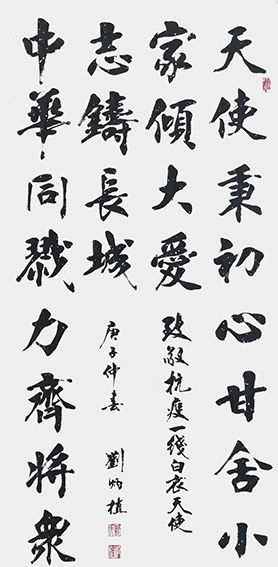 天使秉初心甘舍小
家傾大愛
致敬抗疫一线白衣天使
中華同戮力齊將衆
志鑄長城
庚子仲春 劉炳植